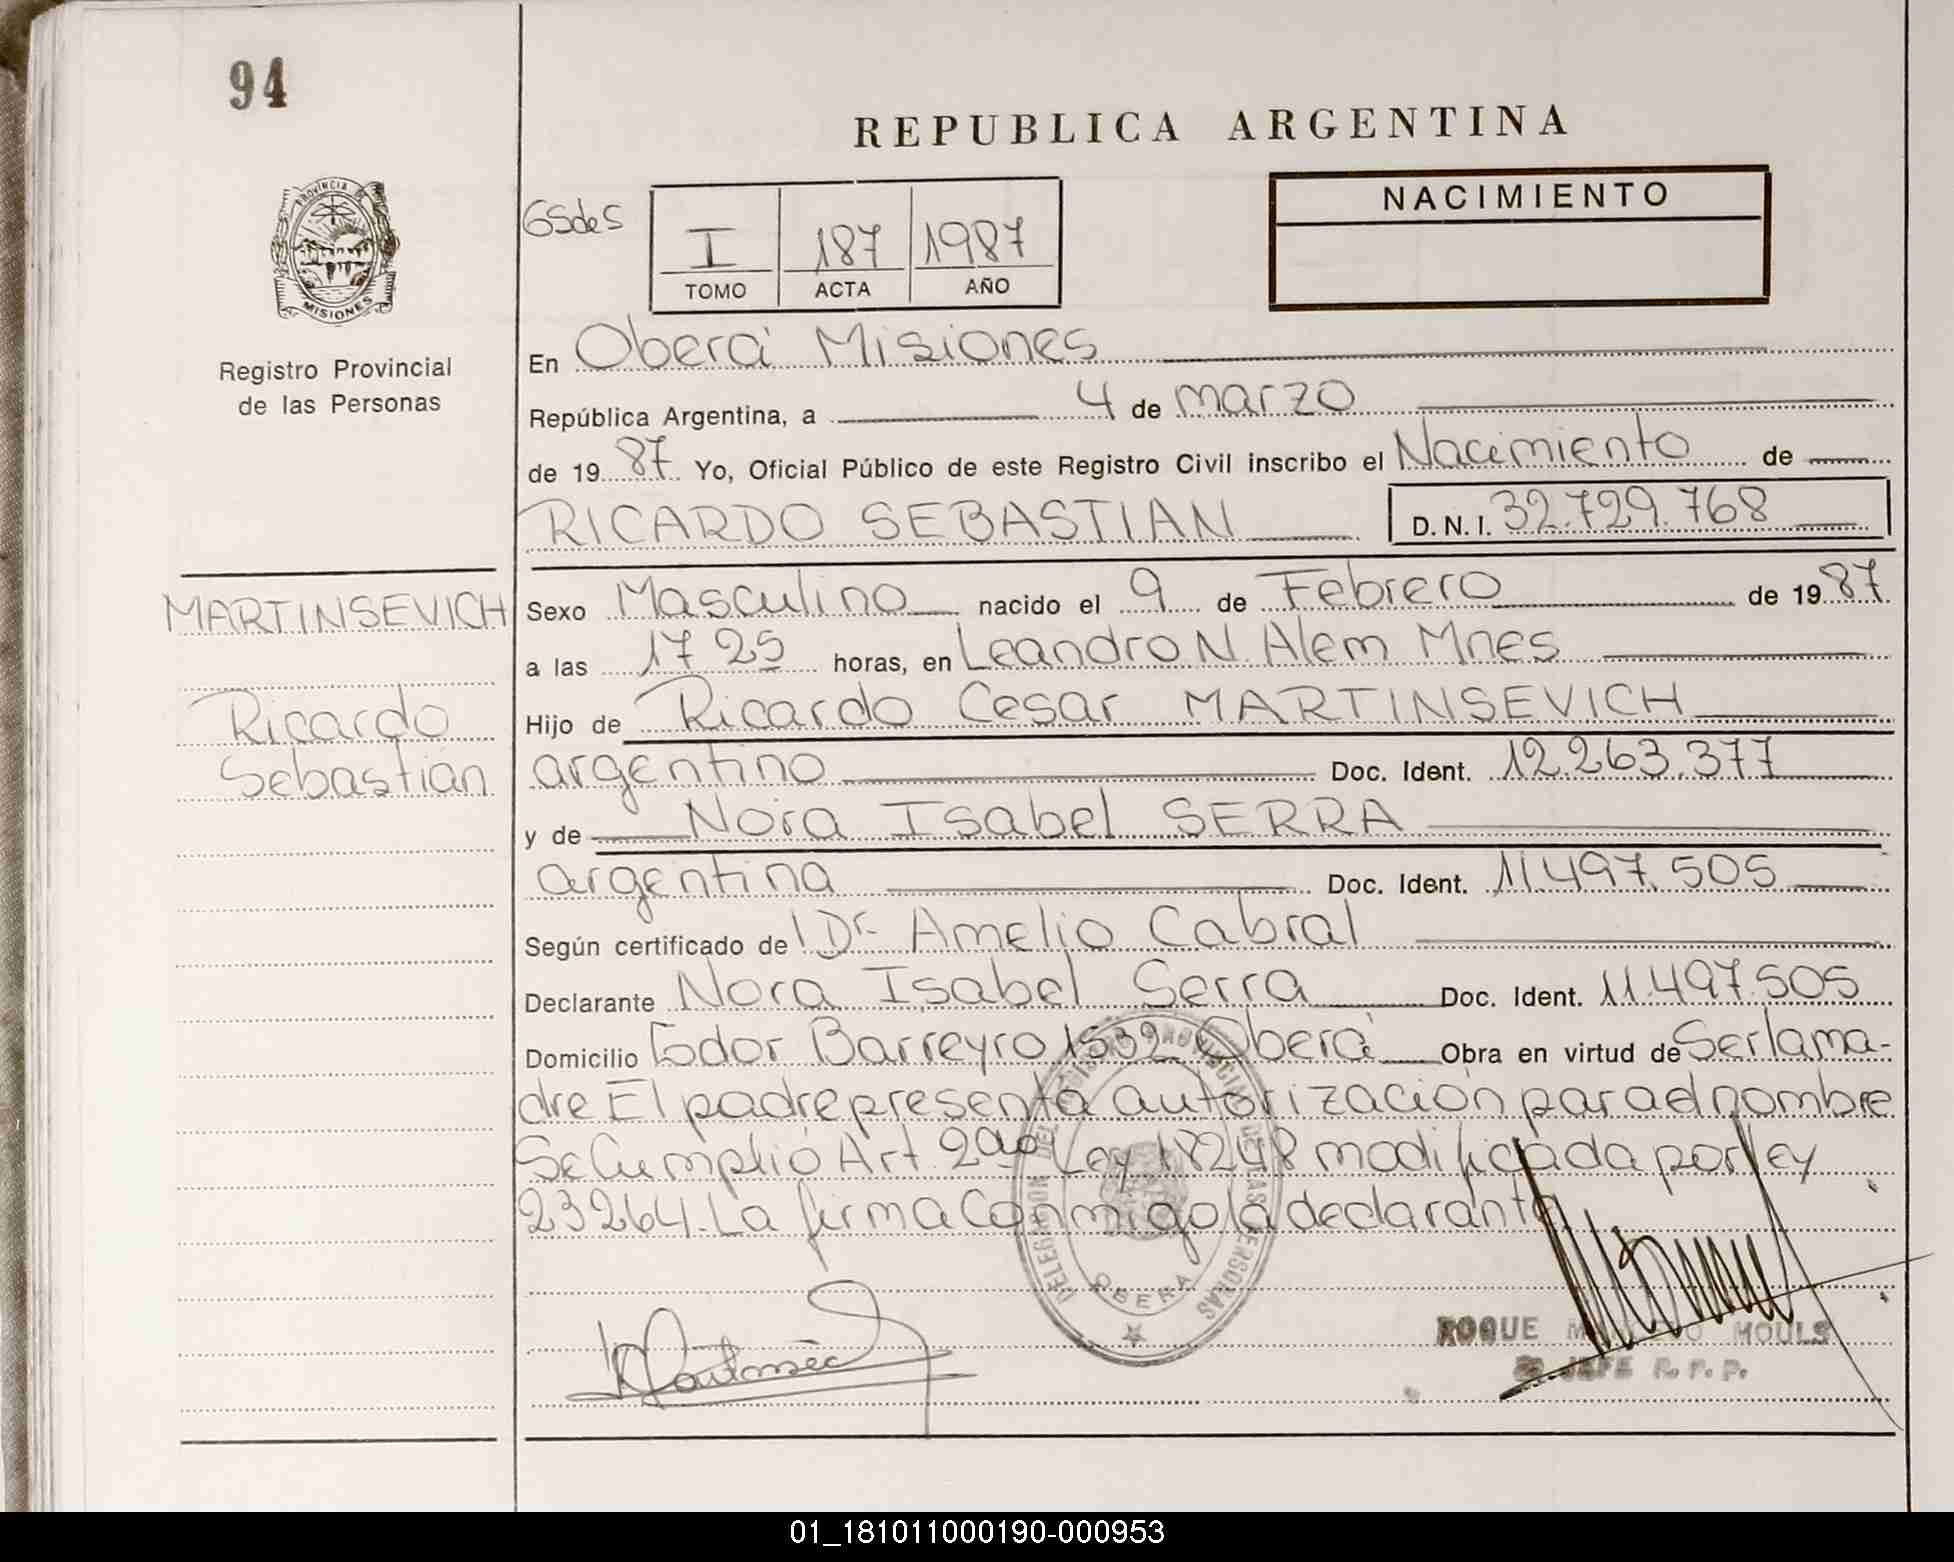 94
REPUBLICA ARGENTINA
PROVINCIA DE
MISIONES
Registro Provincial
de las Personas
I 187 1987
TOMO ACTA AÑO
NACIMIENTO
En Oberá Misiones
República Argentina, a 4 de marzo
de 19 87 Yo, Oficial Público de este Registro Civil inscribo el Nacimiento de
RICARDO SEBASTIAN D.N.I. 32.729.768
MARTINSEVICH
Ricardo
Sebastián
Sexo Masculino nacido el 9 de Febrero de 19 87
a las 17 25 horas, en Leandro N. Alem Mnes
Hijo de Ricardo Cesar MARTINSEVICH
argentino Doc. Ident. 12.263.377
y de Nora Isabel SERRA
argentina Doc. Ident. 11.497.505
Según certificado de Dr. Amelio Cabral
Declarante Nora Isabel Serra Doc. Ident. 11.497.505
Domicilio Fodor Barreyro 1532 Oberá Obra en virtud de Ser la ma-
dre El padre presenta autorización para ad nombre
Se Cumplió Art. 2do Ley 18248 modificada por ley
23264. La firma Conmigo la declarante
DELEGACION DEL REGISTRO PROVINCIAL DE LAS PERSONAS
OBERA
ROQUE MOULS
JEFE R. P. P.
01_181011000190-000953